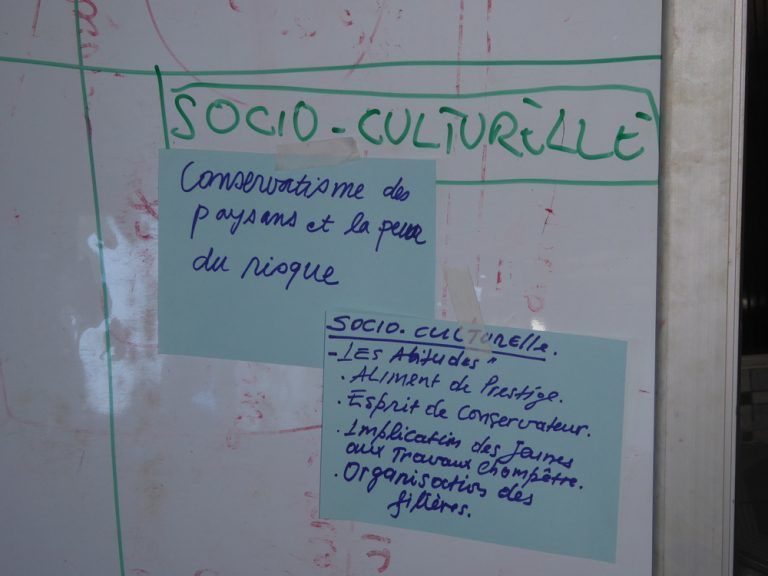 SOCIO-CULTURÈLLE
Conservatisme des
paysans et la peur
du risque
SOCIO-CULTURElle.
- LES Abitudes "
. ALiment de Prestige.
. Esprit de Conservateur.
. Implication des Jeunes
aux Travaux Champêtre.
. Organisation des
filières.